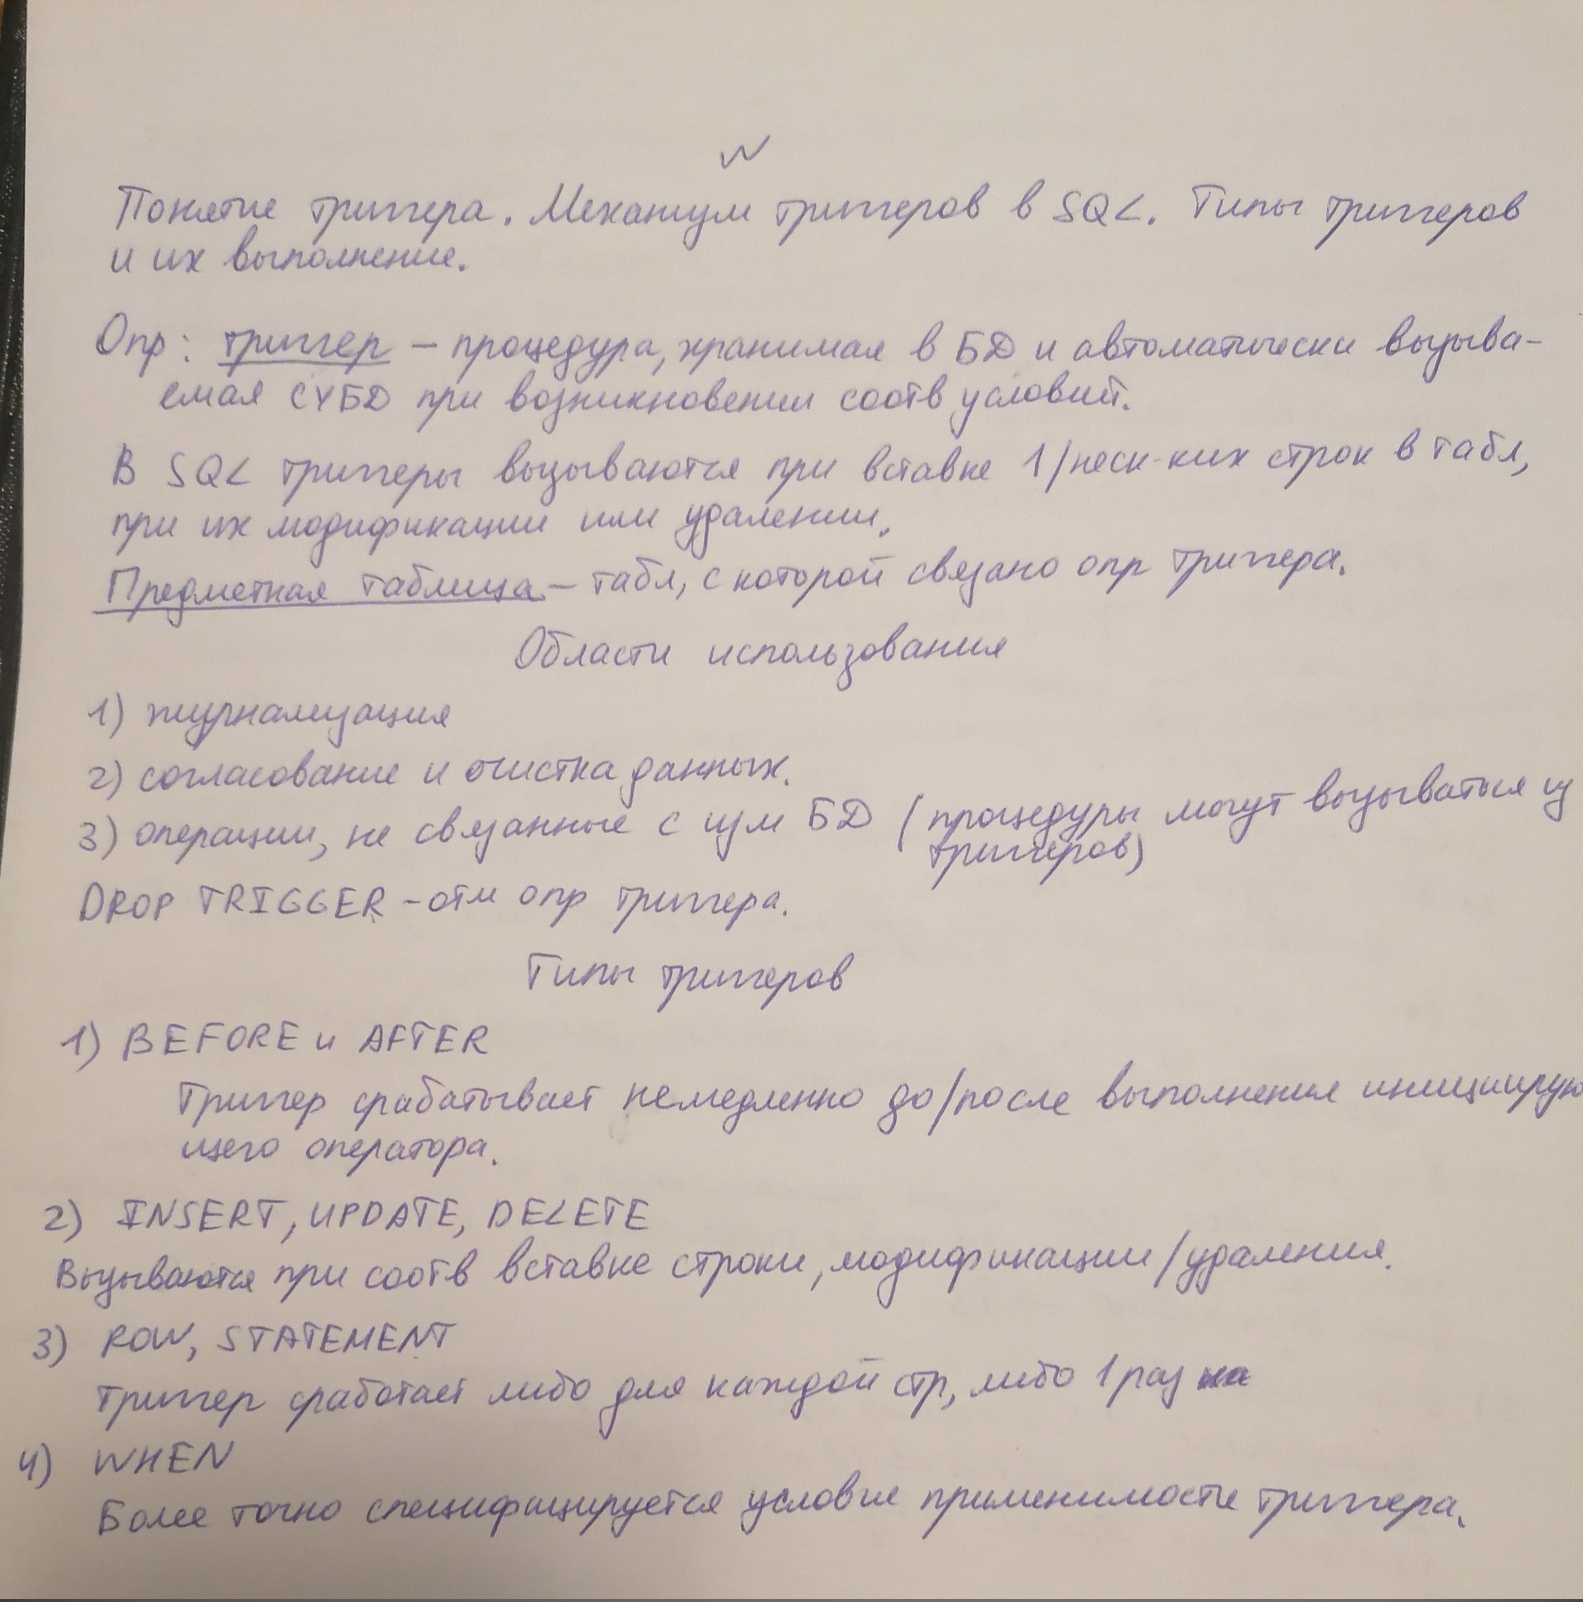 Понятие триггера. Механизм триггеров в SQL. Типы триггеров
и их выполнение.
Опр: триггер – процедура, хранимая в БД и автоматически вызыва-
емая СУБД при возникновении соотв условий.
В SQL триггеры вызываются при вставке 1/неск-ких строк в табл,
при их модификации или удалении.
Предметная таблица – табл, с которой связано опр триггера.
Области использования
1) журнализация
2) согласование и очистка данных.
3) операции, не связанные с изм БД (процедуры могут вызываться из
триггеров)
DROP TRIGGER – отм опр триггера.
Типы триггеров
1) BEFORE и AFTER
Триггер срабатывает немедленно до/после выполнения инициирую
щего оператора.
2) INSERT, UPDATE, DELETE
Вызываются при соотв вставке строки, модификации/удаления.
3) ROW, STATEMENT
Триггер сработает либо для каждой стр, либо 1 раз
4) WHEN
Более точно специфицируется условие применимости триггера.